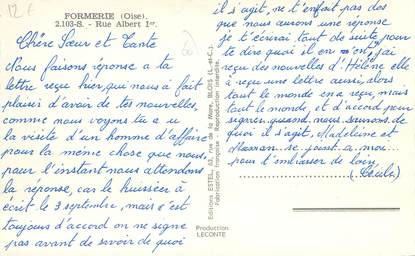 12 F
FORMERIE (Oise).
2.103-S. - Rue Albert 1er.
Chère Sœur et Tante
Nous faisons réponse a ta
lettre reçu hier, qui nous à fait
plaisir d'avoir de tes nouvelles,
comme nous voyons tu a u
la visite d'un homme d'affaire
pour la même chose que nous,
pour l'instant nous attendons
la réponse, car le huissier à
écrit le 3 septembre, mais c'est
toujours d'accord on ne signe
pas avant de savoir de quoi
il s'agit, ne t'enfait pas des
que nous aurons une réponse
je t'écrirai tout de suite pour
te dire quoi il en n'en, j'ai
reçu des nouvelles d'Hélène elle
à reçu une lettre aussi, alors
tout le monde en a reçu, mais
tout le monde, et d'accord pour
signer quand nous saurons de
quoi il s'agit, Madeleine et
se joint a moi
pour t'embrasser de loin
Editions ESTEL, 63, rue de la Mare, BLOIS (L.-et-C.)
Fabrication française - Reproduction interdite.
Production
LECONTE